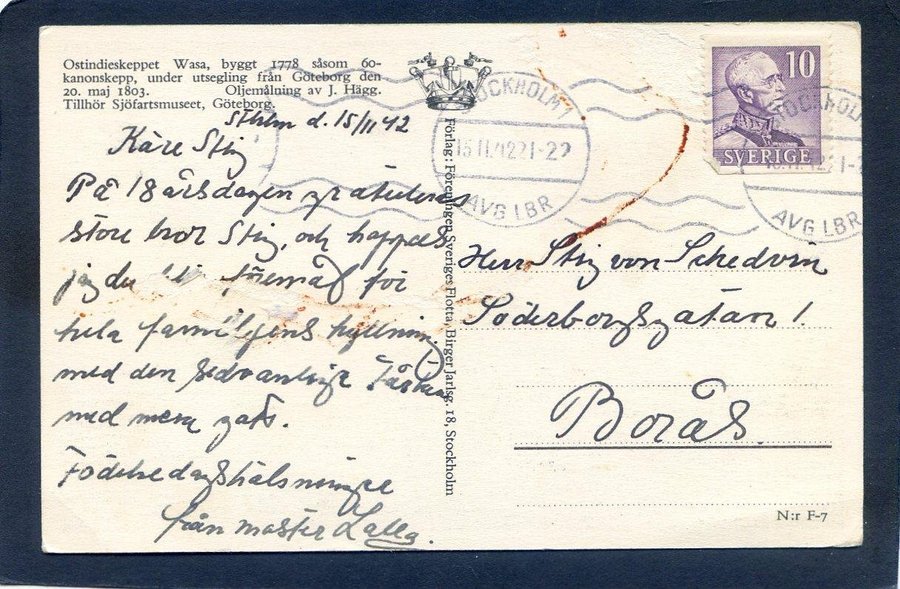 Ostindieskeppet Wasa, byggt 1778 såsom 60-
kanonskepp, under utsegling från Göteborg den
20. maj 1803. Oljemålning av J. Hägg.
Tillhör Sjöfartsmuseet, Göteborg.
Sthlm d. 15/11 42
Käre Stig
På 18 årsdagen gratuleras
store bror Stig, och hoppas
jag du föremål för
hela familjens hyllning
med den sedvanliga
med mera gott.
Födelsedagshälsningar
från moster Lalla.
Förlag: Föreningen Sveriges Flotta, Birger Jarlsg. 18, Stockholm
STOCKHOLM 1
15.11.42 21-22
AVG LBR
10
SVERIGE
STOCKHOLM
15.11.42 21-2
AVG LBR
Herr Stig von Schedvin
Söderborgsgatan 1.
Borås.
N:r F-7